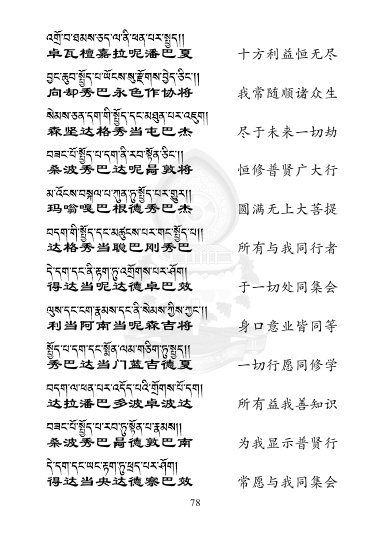 འགྲོ་བ་ཐམས་ཅད་ལ་ནི་ཕན་པར་སྤྱད།།
卓瓦檀嘉拉呢潘巴夏 十方利益恒无尽
བྱང་ཆུབ་སྤྱོད་པ་ཡོངས་སུ་རྫོགས་བྱེད་ཅིང་།།
向却秀巴永色作协将 我常随顺诸众生
སེམས་ཅན་དག་གི་སྤྱོད་དང་མཐུན་པར་འཇུག།
森坚达格秀当屯巴杰 尽于未来一切劫
བཟང་པོ་སྤྱོད་པ་དག་ནི་རབ་སྟོན་ཅིང་།།
桑波秀巴达呢曷敦将 恒修普贤广大行
མ་འོངས་བསྐལ་པ་ཀུན་ཏུ་སྤྱོད་པར་གྱུར།།
玛嗡嘎巴根德秀巴杰 圆满无上大菩提
བདག་གི་སྤྱོད་དང་མཚུངས་པར་གང་སྤྱོད་པ།།
达格秀当聪巴刚秀巴 所有与我同行者
དེ་དག་དང་ནི་རྟག་ཏུ་འགྲོགས་པར་ཤོག།
得达当呢达德卓巴效 于一切处同集会
ལུས་དང་ངག་རྣམས་དང་ནི་སེམས་ཀྱིས་ཀྱང་།།
利当阿南当呢森吉将 身口意业皆同等
སྤྱོད་པ་དག་དང་སྨོན་ལམ་གཅིག་ཏུ་སྤྱད།།
秀巴达当门蓝吉德夏 一切行愿同修学
བདག་ལ་ཕན་པར་འདོད་པའི་གྲོགས་པོ་དག།
达拉潘巴多波卓波达 所有益我善知识
བཟང་པོ་སྤྱོད་པ་རབ་ཏུ་སྟོན་པ་རྣམས།།
桑波秀巴曷德敦巴南 为我显示普贤行
དེ་དག་དང་ཡང་རྟག་ཏུ་ཕྲད་པར་ཤོག།
得达当央达德察巴效 常愿与我同集会
78